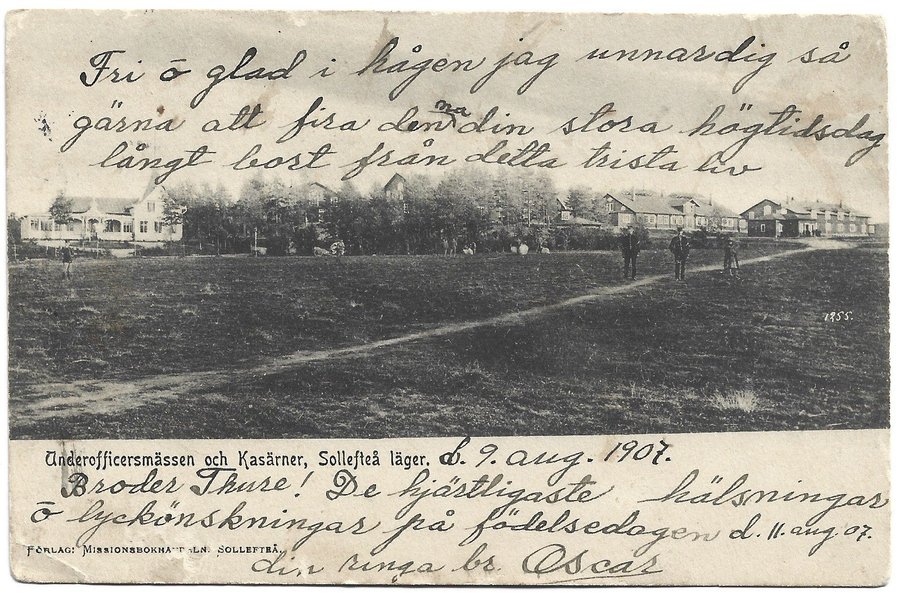 Fri ō glad i hågen jag unnardig så
gärna att fira denna din stora högtidsdag
långt bort från detta trista liv
1955.
Underofficersmässen och Kasärner, Sollefteå läger. d. 9. aug. 1907.
Broder Thure! De hjärtligaste hälsningar
ō lyckönskningar på födelsedagen d. 11. aug 07.
FÖRLAG: MISSIONSBOKHANDELN. SOLLEFTEÅ.
din ringa br. Oscar